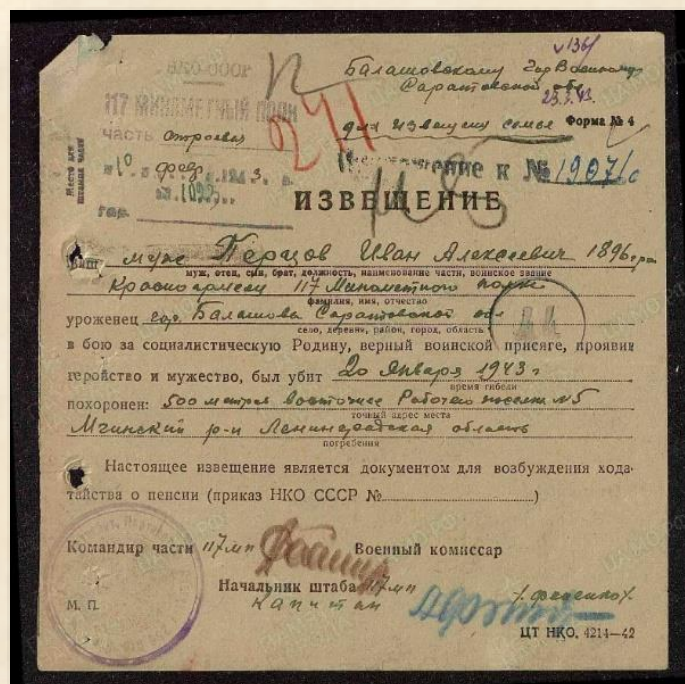 Балашовскому Гор Военкому
Саратовской обл
117 МИНОМЕТНЫЙ ПОЛК
23.3.43.
часть строевая
для извещения семьи Форма № 4
241
"10" фев 1943. г.
к № 1907/с
№ 1093
гар.
ИЗВЕЩЕНИЕ
Ваш муж Перцов Иван Алексеевич 1896 г.
муж, отец, сын, брат, должность, наименование части, воинское звание
Красноармеец 117 Минометного полка
фамилия, имя, отчество
уроженец гор. Балашова Саратовской обл
село, деревня, район, город, область
44
в бою за социалистическую Родину, верный воинской присяге, проявив
геройство и мужество, был убит 20 Января 1943 г
время гибели
похоронен: 500 метров восточнее Рабочего поселка №5
точный адрес места
Мгинский р-н Ленинградская область
погребения
Настоящее извещение является документом для возбуждения хода-
тайства о пенсии (приказ НКО СССР № )
Командир части 117 мп Военный комиссар
Начальник штаба 117 мп
М. П. Капитан
ЦТ НКО. 4214—42